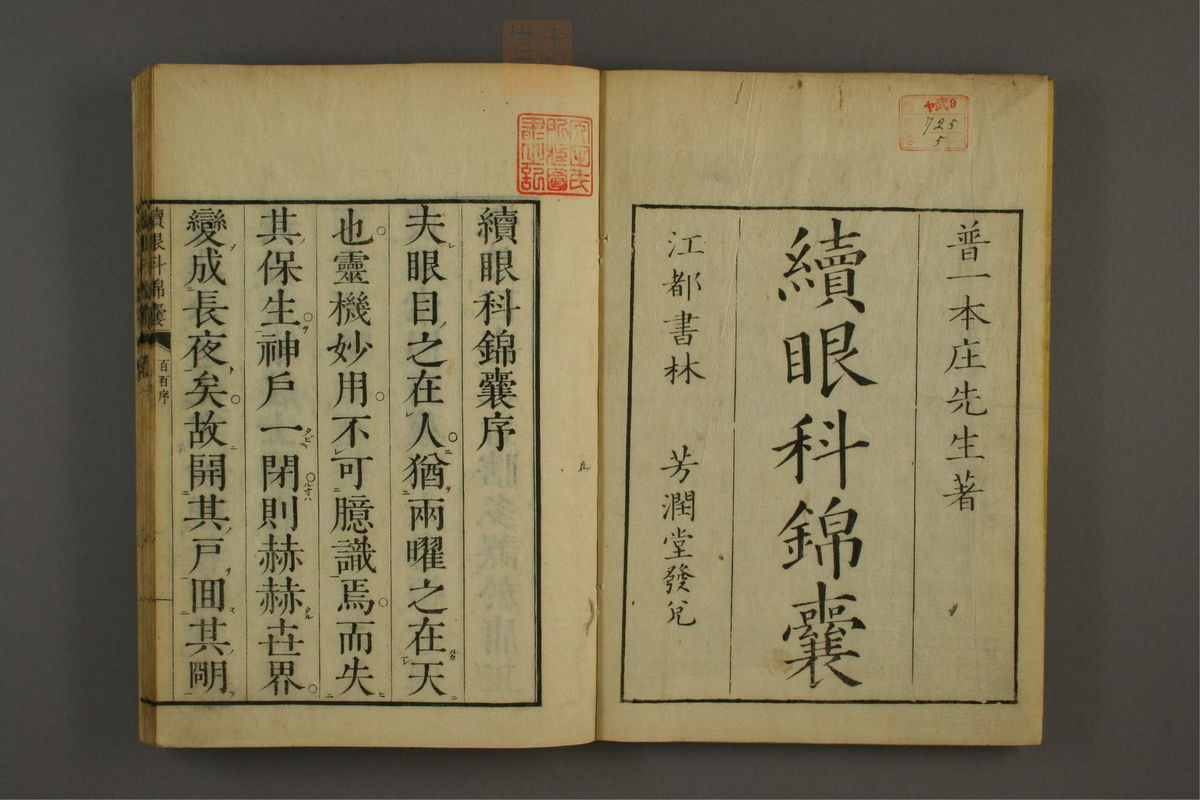 普一本庄先生著
續眼科錦囊
江都書林 芳潤堂發兌
ヤ武9
725
5
續眼科錦囊序
夫眼目之在人猶兩曜之在天
也靈機妙用不可臆識焉而失
其保生神戶一閉則赫赫世界
變成長夜矣故開其戶回其明
續眼科錦囊
序